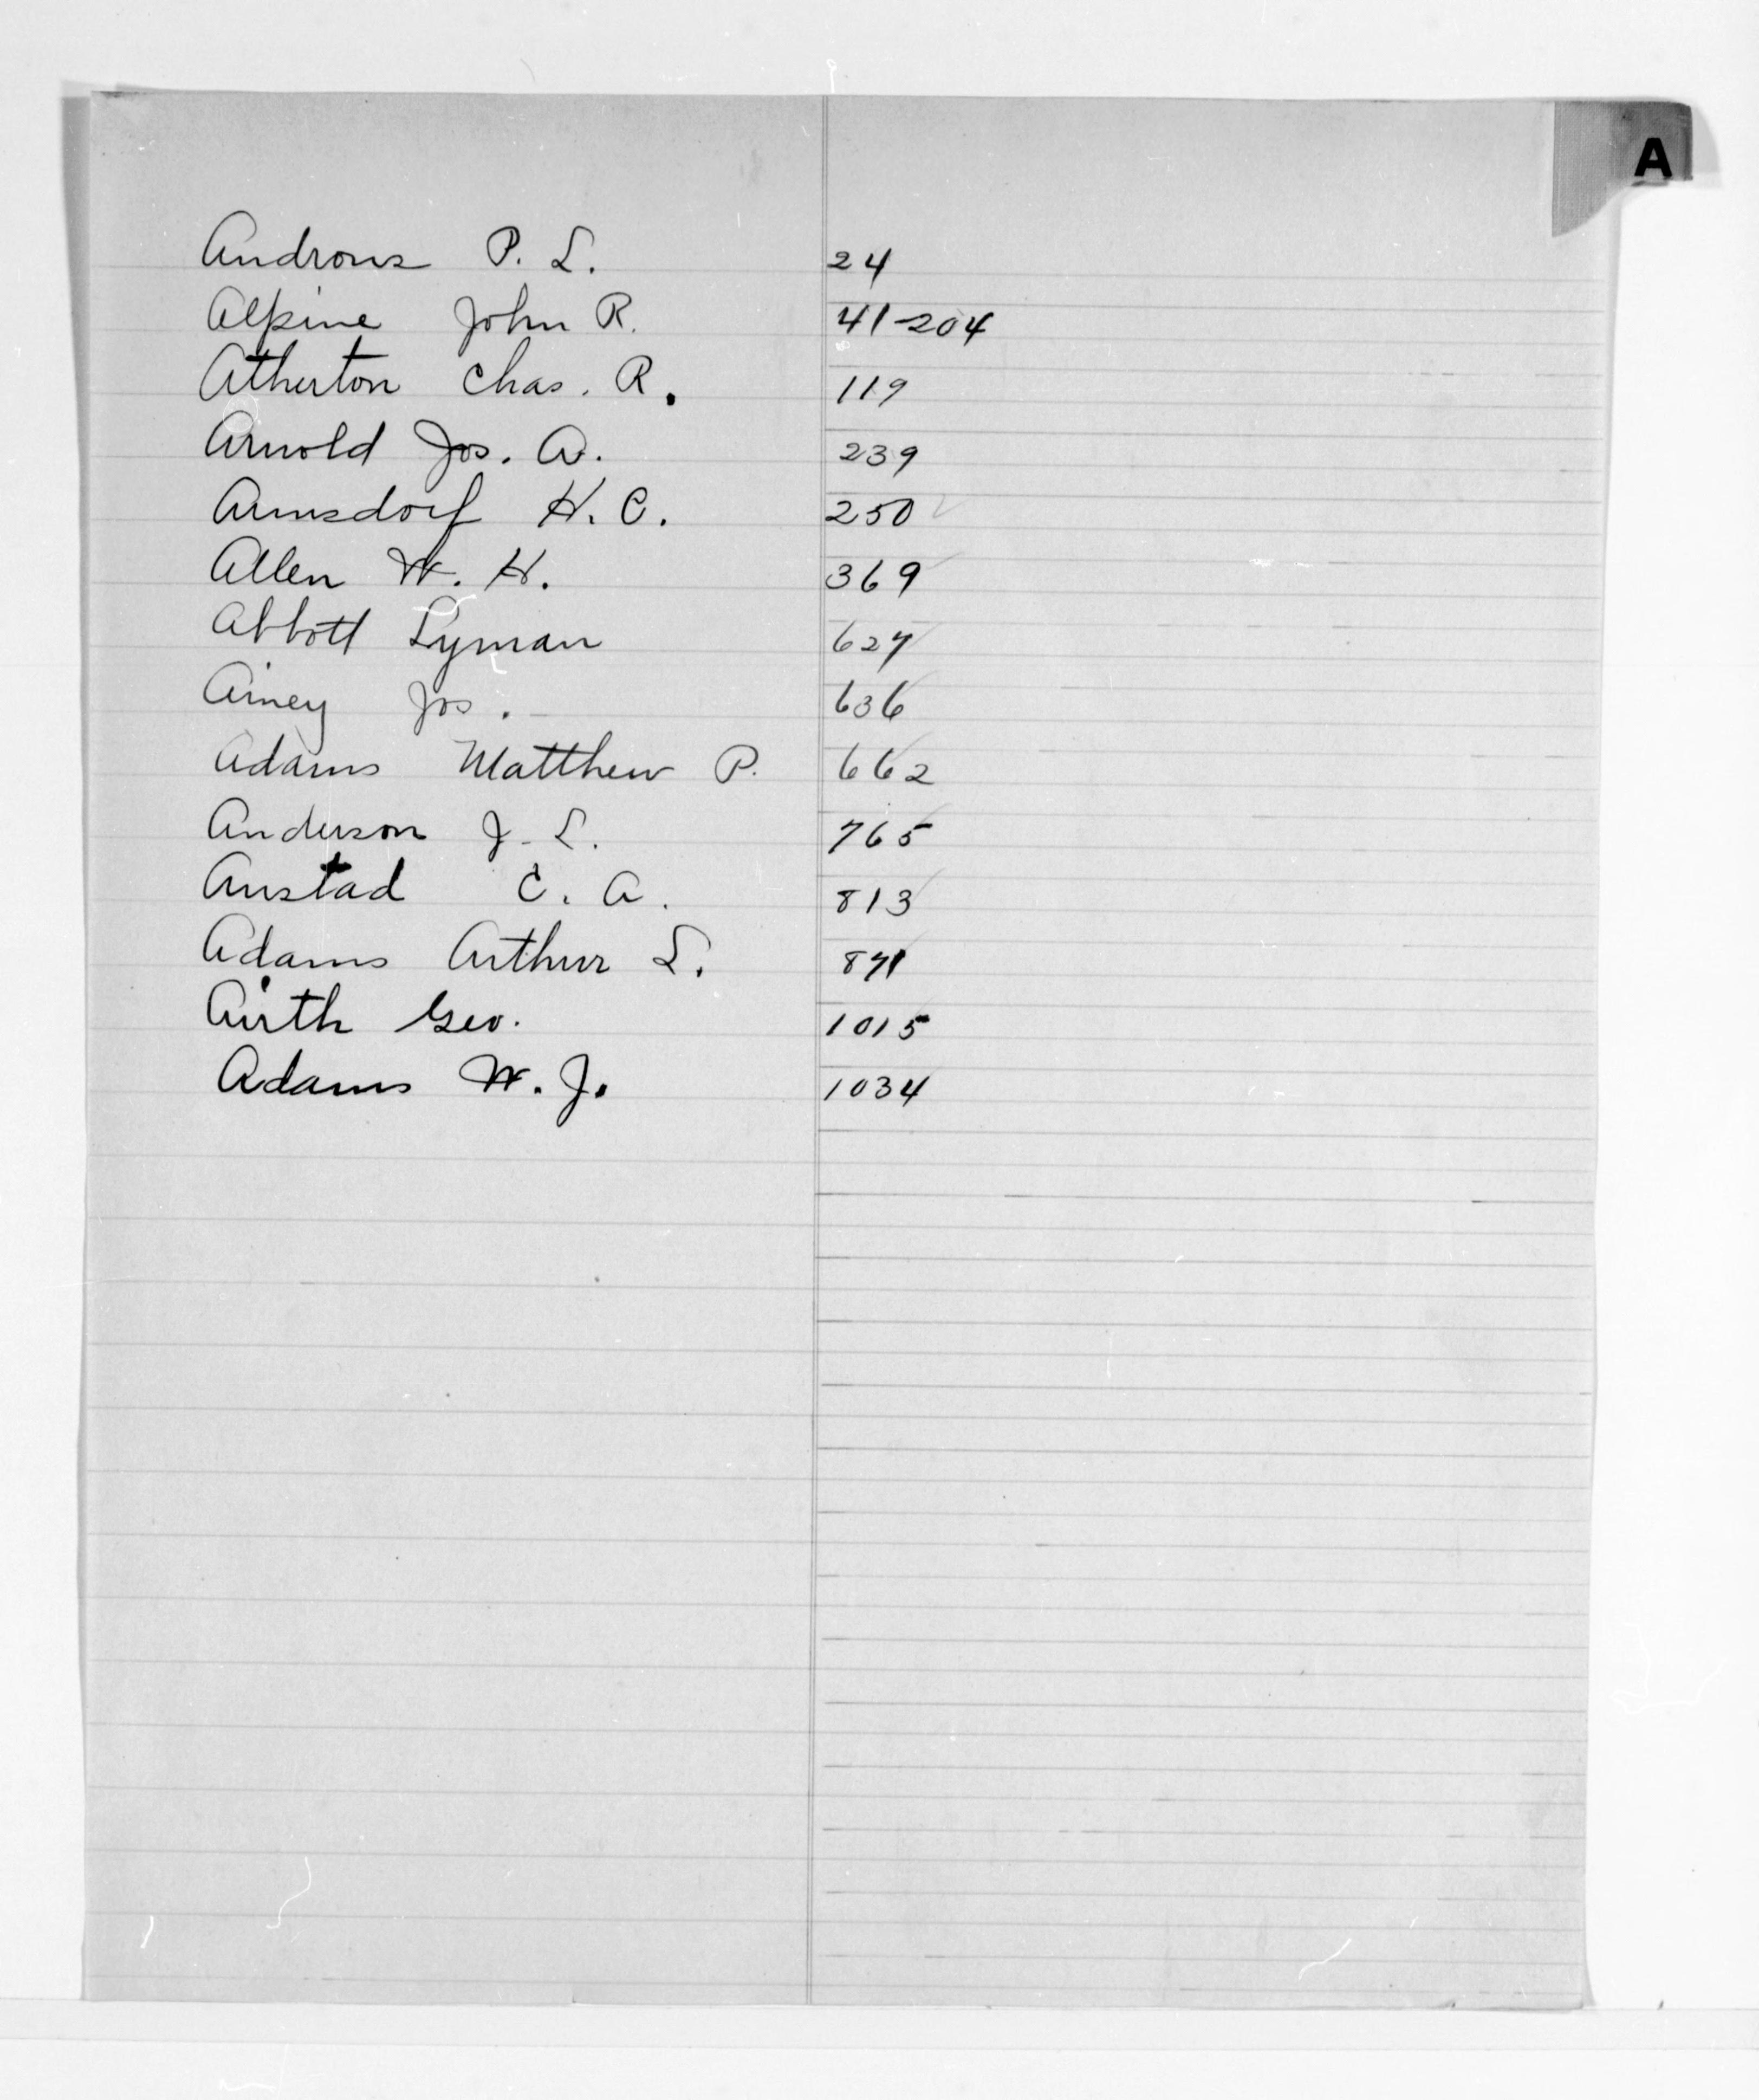 A
Androus P. L. 24
Alpine John R. 41-204
Atherton Chas. R. 119
Arnold Jos. A. 239
Armsdorf H. C. 250
Allen W. H. 369
Abbott Lyman 627
Ainey Jos. 636
Adams Matthew P. 662
Anderson J. L. 765
Anstad C. A. 813
Adams Arthur L. 871
Airth Geo. 1015
Adams W. J. 1034